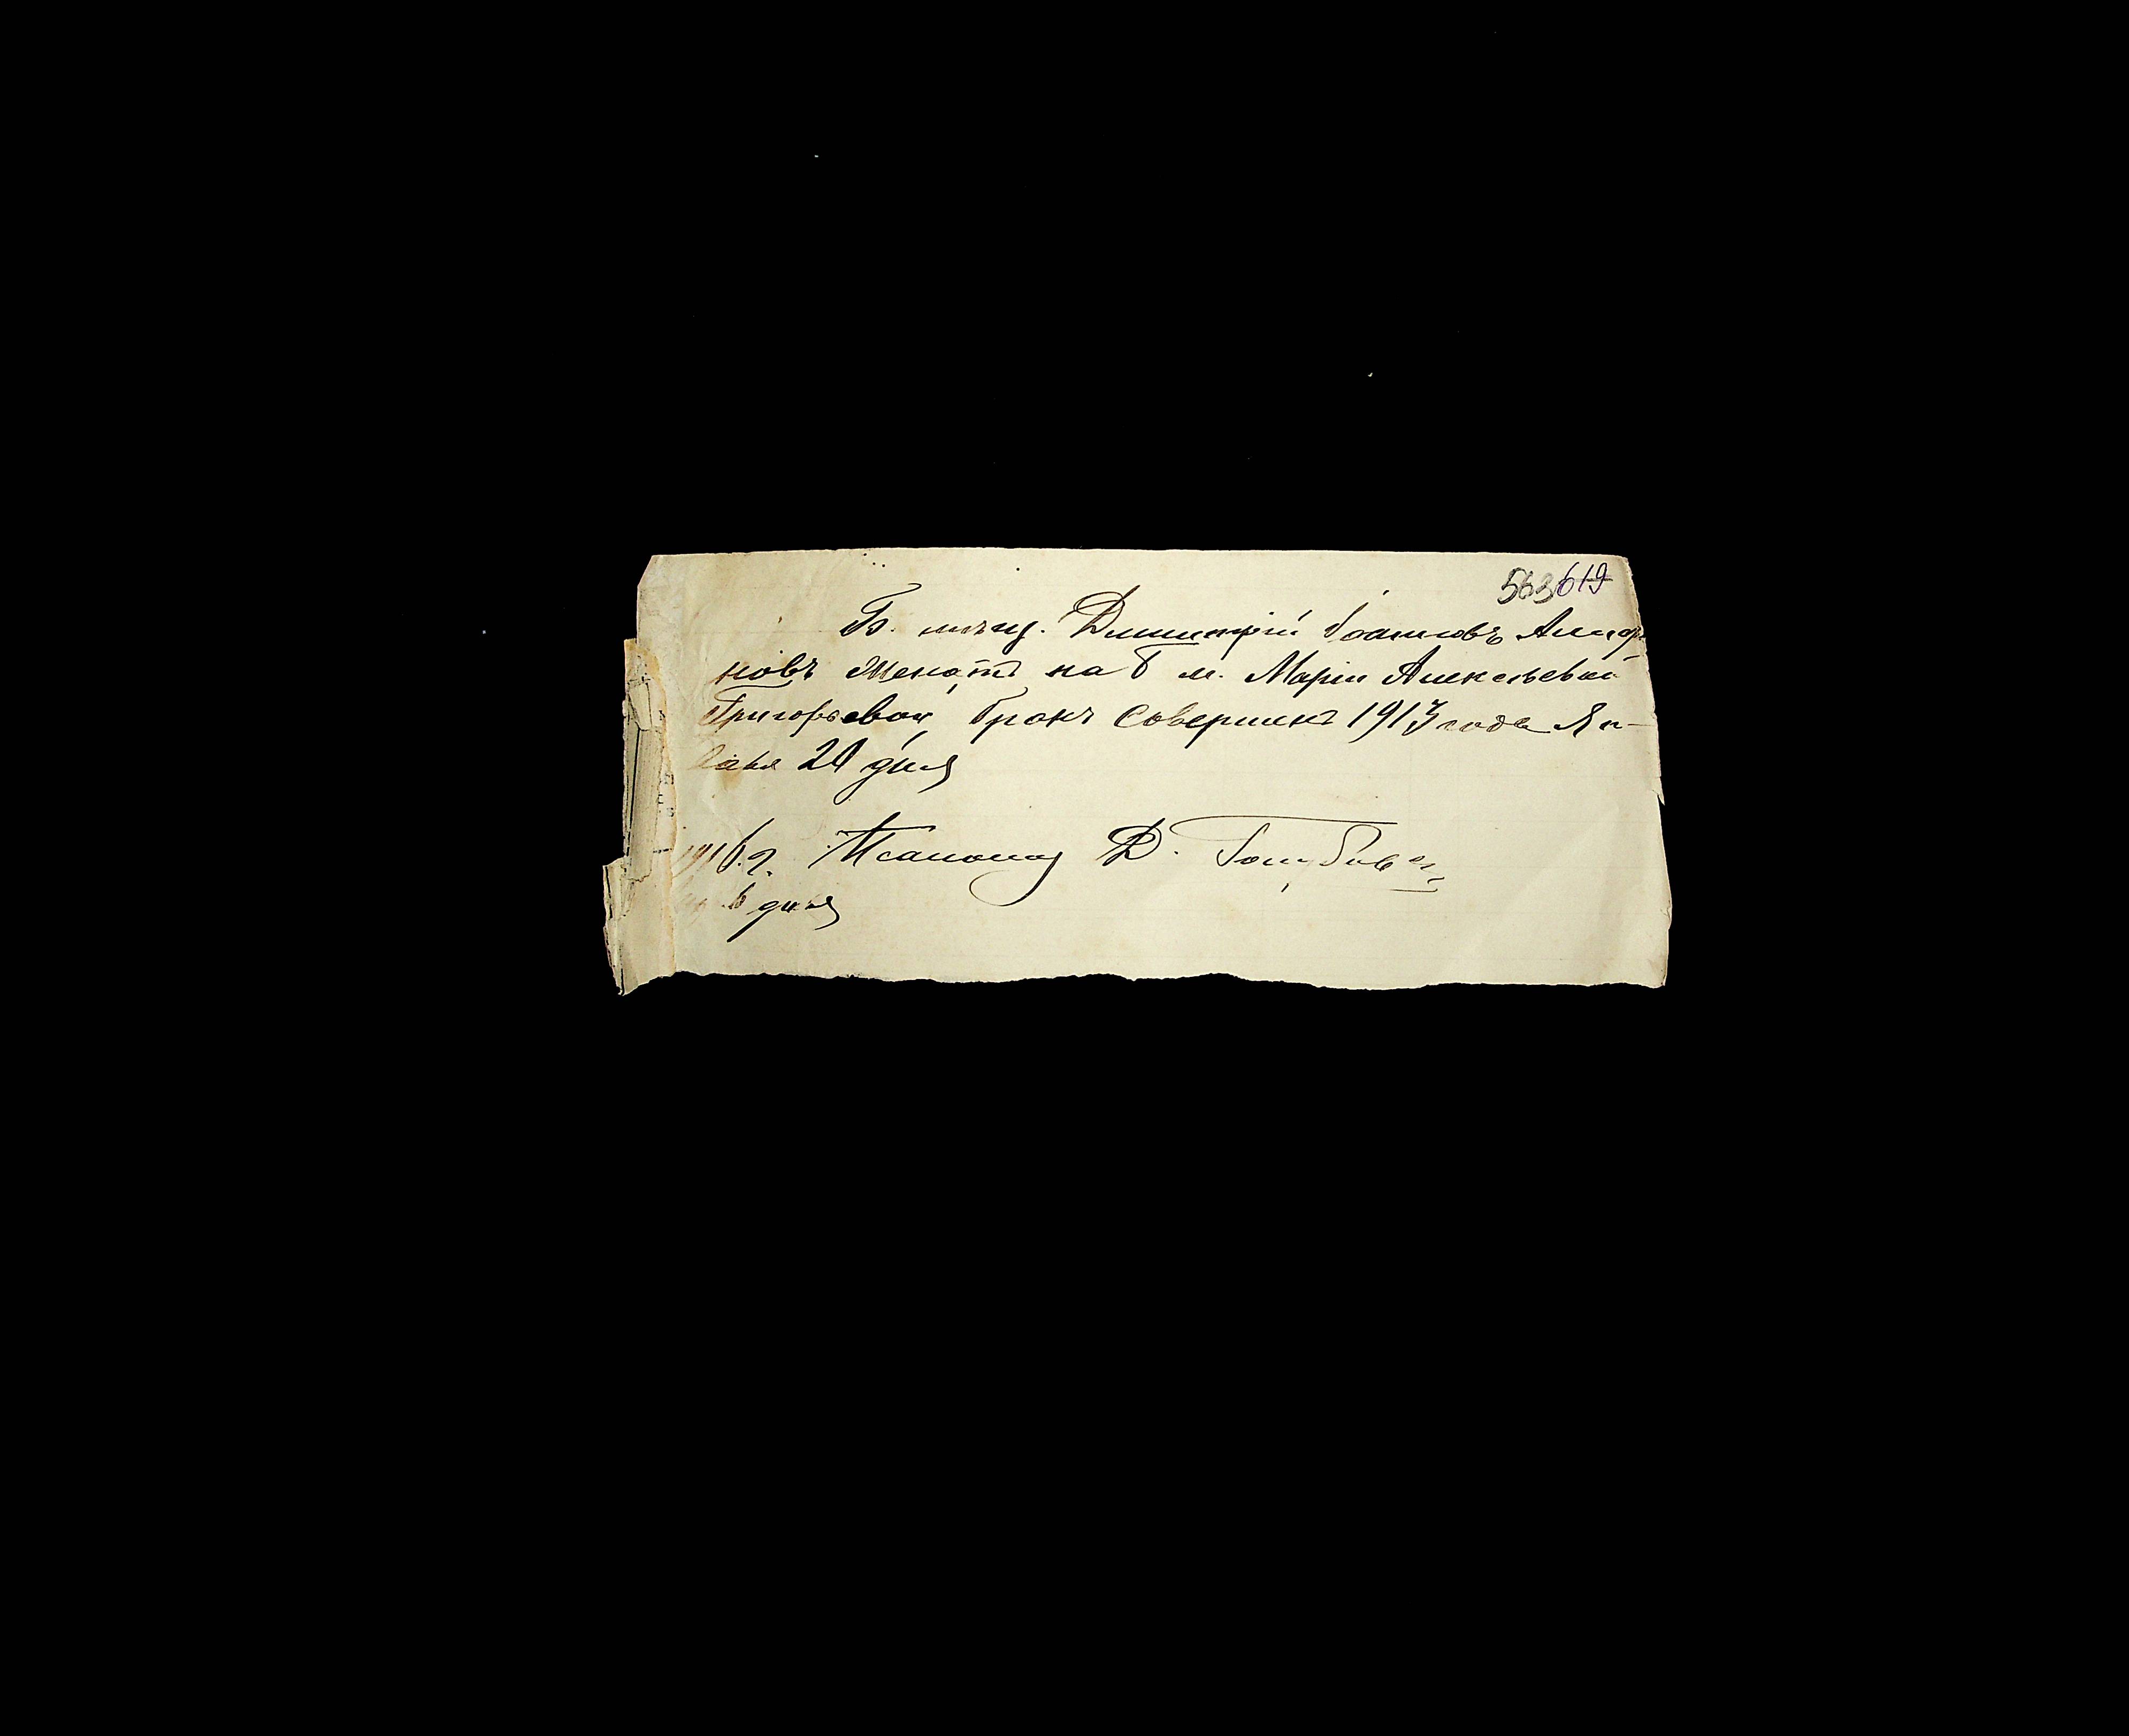 563 619
Б. мѣщ. Димитрій Іоанновъ Алифа
новъ женатъ на б м. Маріи Алексѣевной
Григорьевой, бракъ совершенъ 1913 года Ян-
варя 20 дня
1916 г. Псаломщ Д. Голубевъ
6 дня